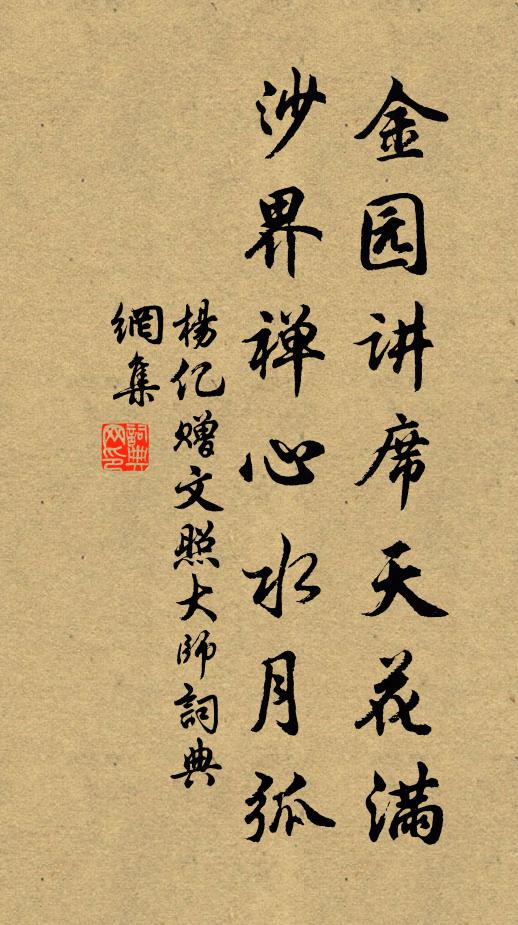 金园讲席天花满
沙界禅心水月孤
楊亿赠文照大师詞典
網集
詞典
网印